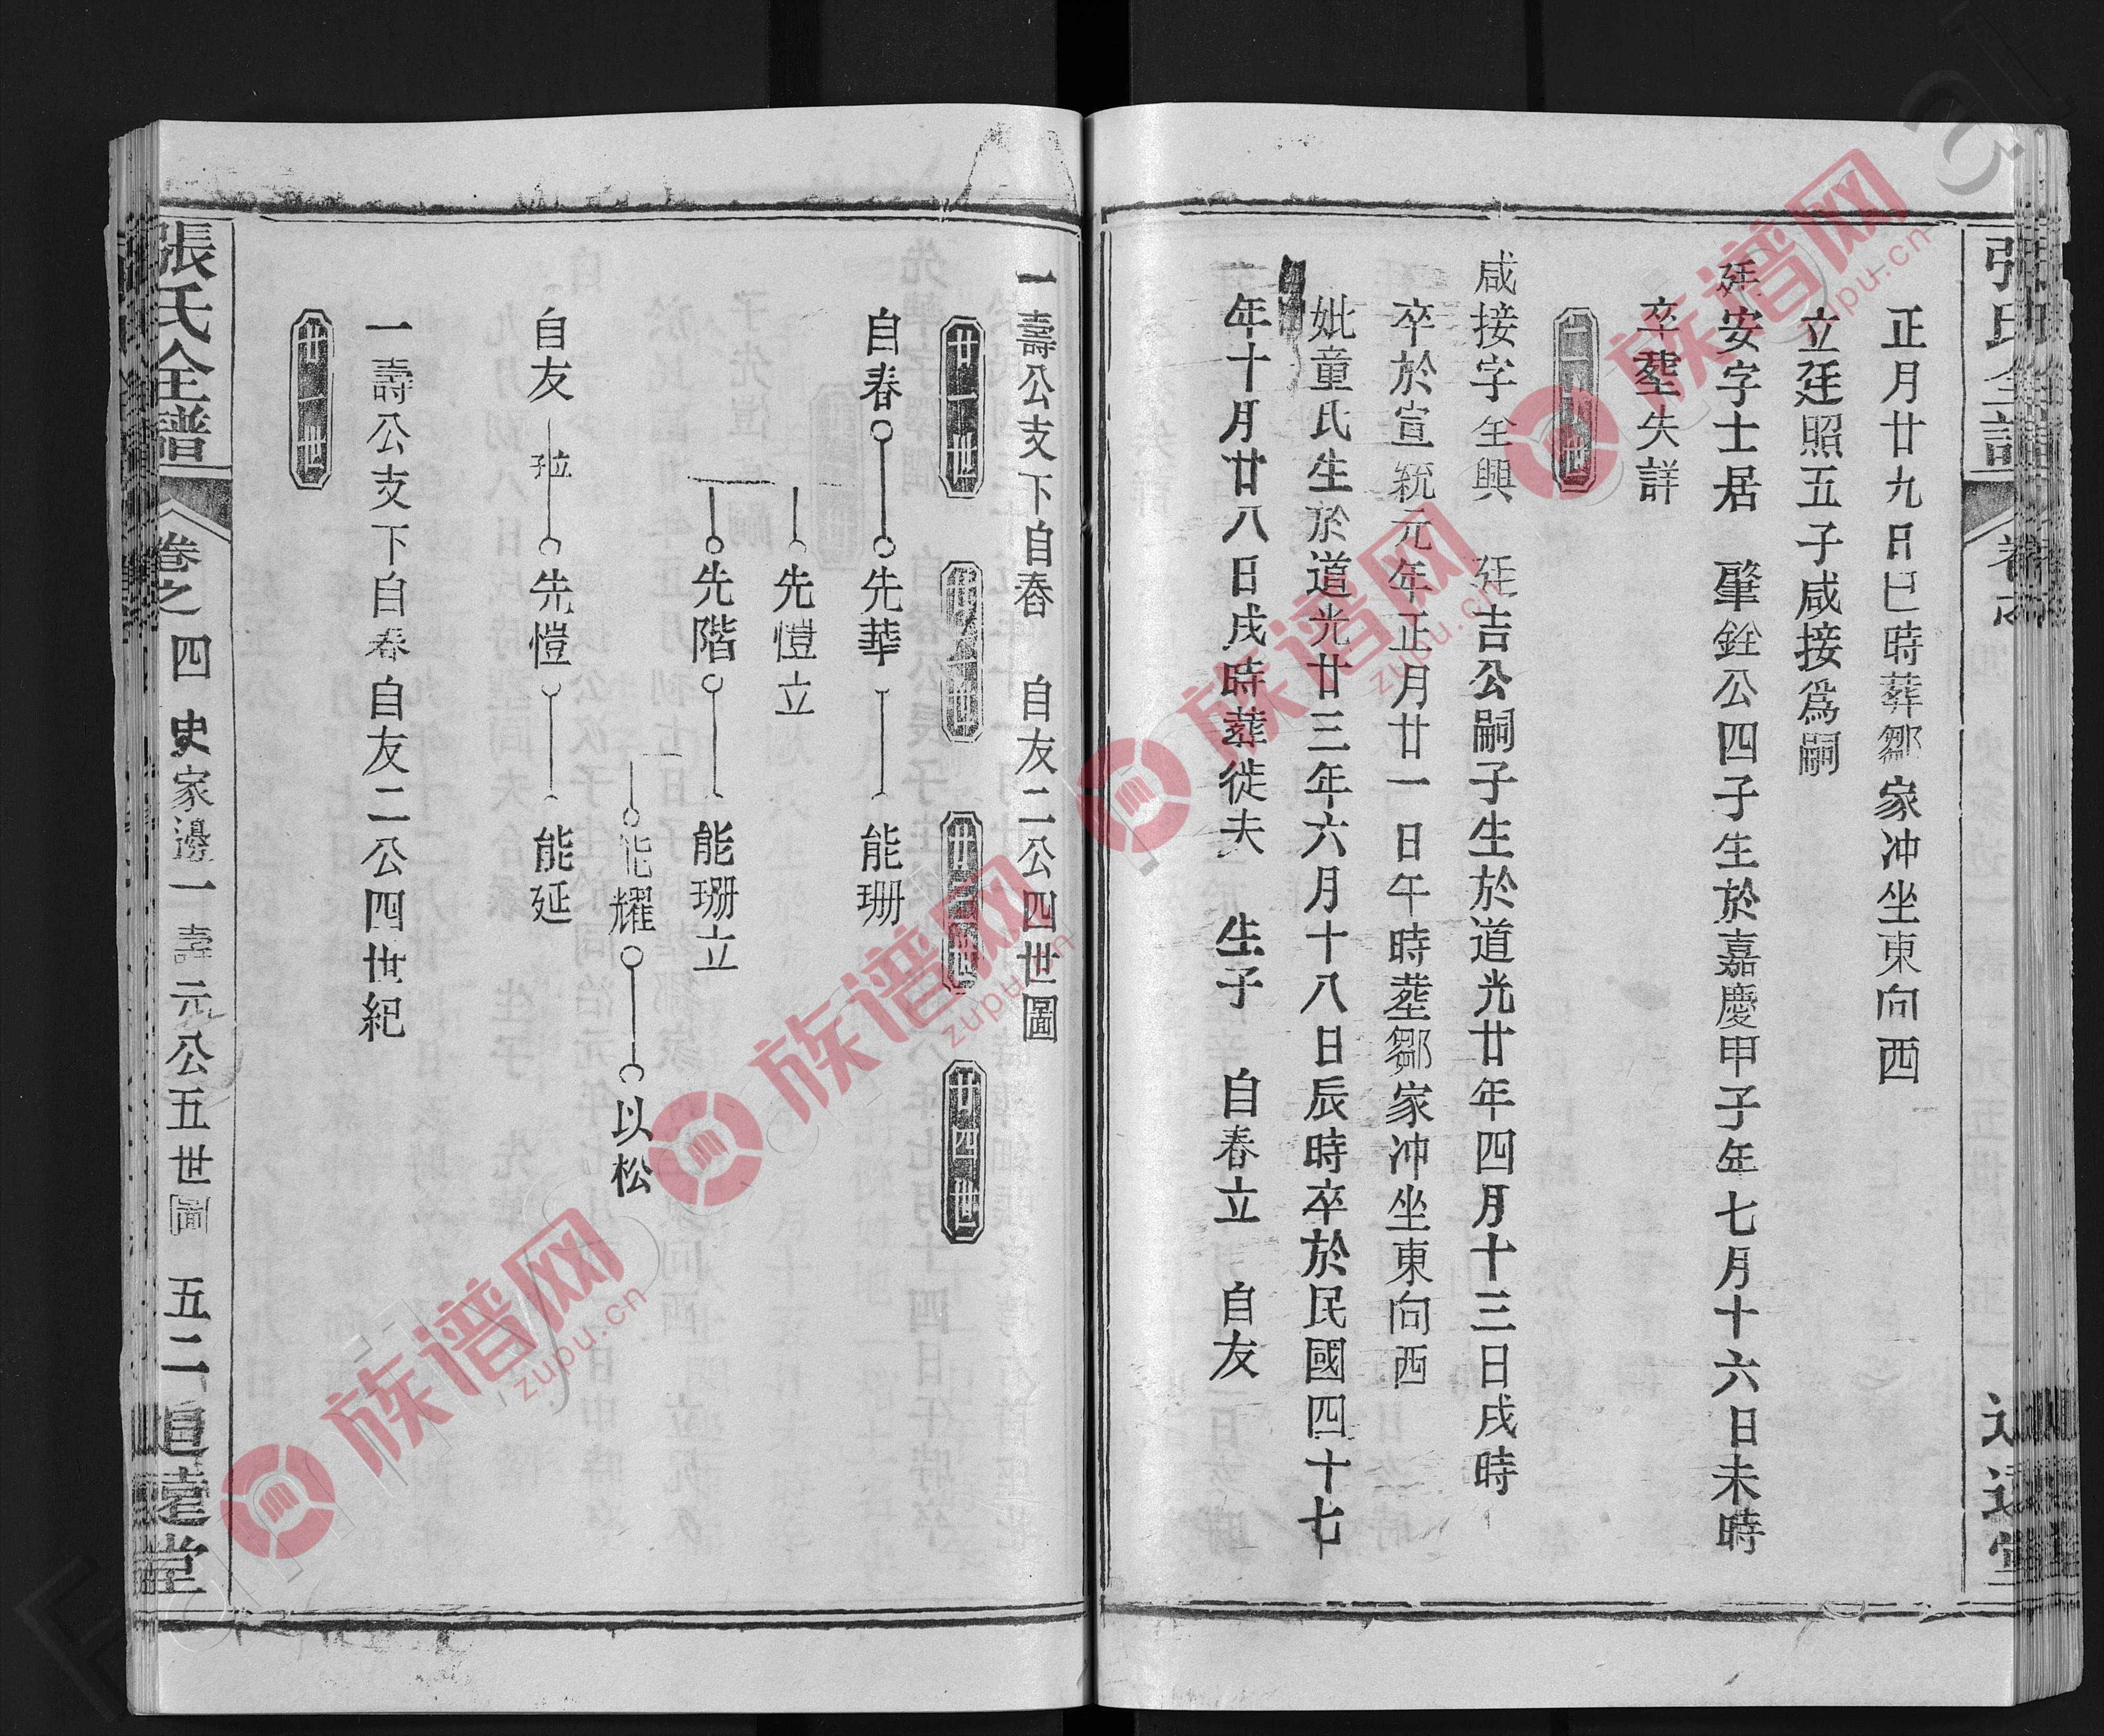 正月廿九日巳時葬鄒家冲坐東向西
立廷照五子咸接爲嗣
廷安字士居　肇銓公四子生於嘉慶甲子年七月十六日未時
卒塟失詳
咸接字全興　廷吉公嗣子生於道光廿年四月十三日戌時
卒於宣統元年正月廿一日午時塟鄒家冲坐東向西
妣童氏生於道光廿三年六月十八日辰時卒於民國四十七
年十月廿八日戌時葬徙夫　生子　自春立　自友
一壽公支下自春　自友二公四世圖
廿一世
廿二世
廿三世
廿四世
自春　先華　能珊
先愷立
先階　能珊立
能耀　以松
自友　先愷　能延
一壽公支下自春自友二公四世紀
廿一世
張氏全譜　卷之四　史家邊一壽元公五世圖　五二　追遠堂
族谱网
zupu.cn
族谱网
zupu.cn
族谱网
zupu.cn
族谱网
zupu.cn